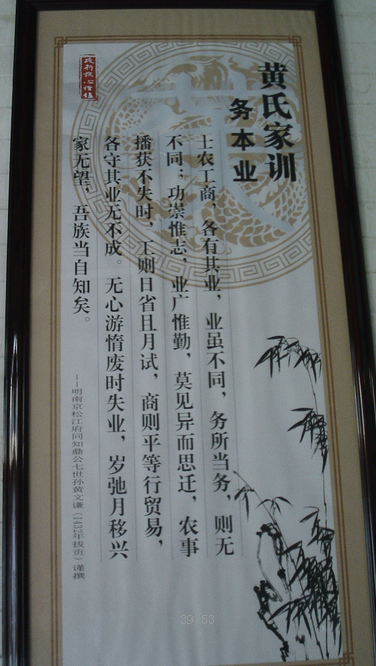 黄氏家训
务本业
士农工商，各有其业，业虽不同，务所当务，则无
不同；功崇惟志，业广惟勤，莫见异而思迁，农事
播获不失时，工则日省且月试，商则平等行贸易，
各守其业无不成。无心游惰废时失业，岁弛月移兴
家无望，吾族当自知矣。
——明南京松江府同知鼎公七世孙黄文谦（1432年拔贡）谨撰
39 / 53